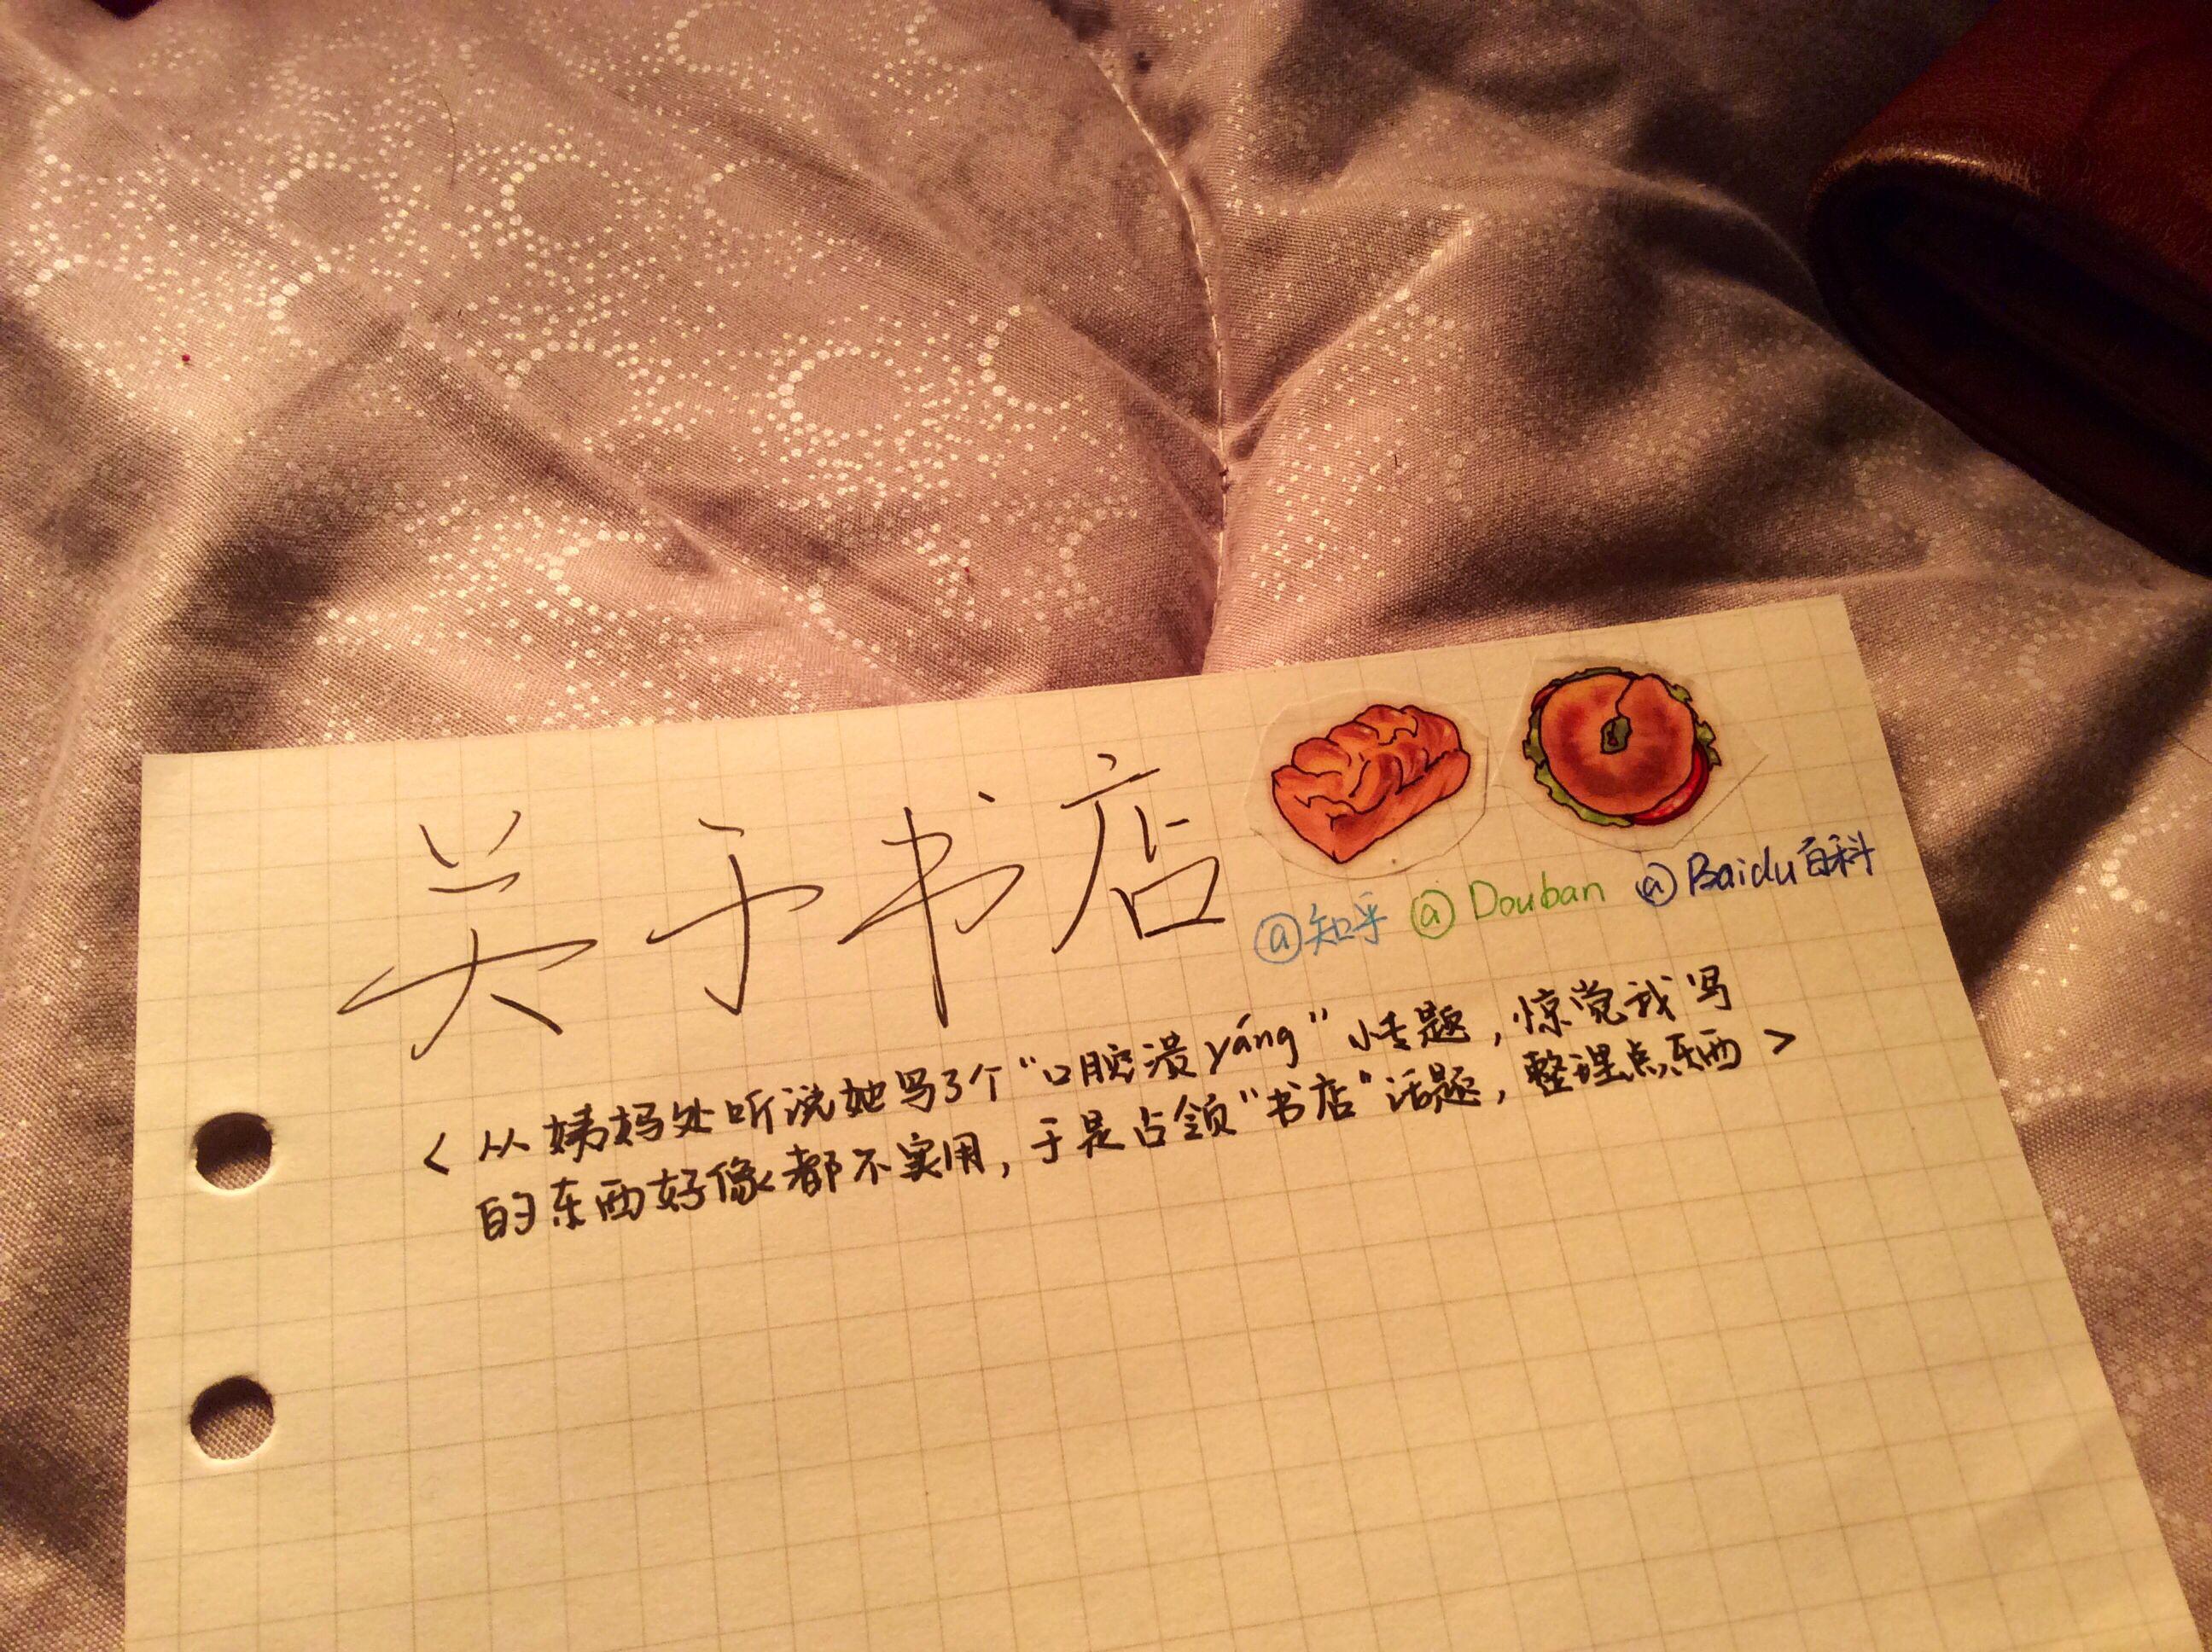 关于书店
@知乎 @Douban @Baidu百科
<从姨妈处听说她写了个“口腔溃yáng”话题，惊觉我写
的东西好像都不实用，于是占领“书店”话题，整理点东西>